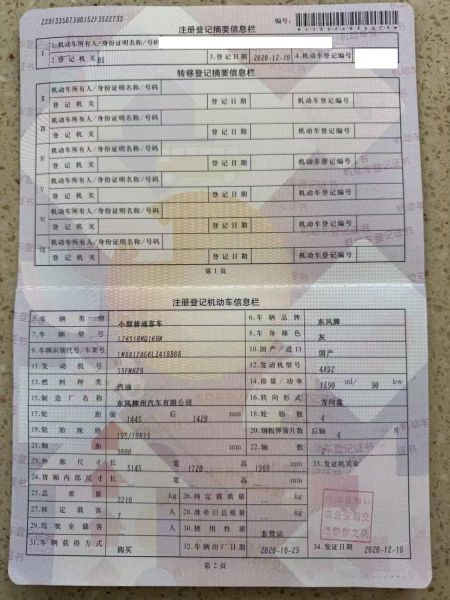 注册登记摘要信息栏 编号:
I 1.机动车所有人/身份证明名称/号码
2.登记机关 3.登记日期 2020-12-10 4.机动车登记编号
转移登记摘要信息栏
II 机动车所有人/身份证明名称/号码
登记机关 登记日期 机动车登记编号
III 机动车所有人/身份证明名称/号码
登记机关 登记日期 机动车登记编号
IV 机动车所有人/身份证明名称/号码
登记机关 登记日期 机动车登记编号
V 机动车所有人/身份证明名称/号码
登记机关 登记日期 机动车登记编号
VI 机动车所有人/身份证明名称/号码
登记机关 登记日期 机动车登记编号
VII 机动车所有人/身份证明名称/号码
登记机关 登记日期 机动车登记编号
第1页
注册登记机动车信息栏
5.车辆类型 小型普通客车 6.车辆品牌 东风牌
7.车辆型号 8.车身颜色 灰
9.车辆识别代号/车架号 10.国产/进口 国产
11.发动机号 12.发动机型号
13.燃料种类 汽油 14.排量/功率 1590 ml/ 90 kw
15.制造厂名称 东风柳州汽车有限公司 16.转向形式 方向盘
17.轮距 前 1445 后 1420 mm 18.轮胎数 4
19.轮胎规格 195/70R15 20.钢板弹簧片数 后轴 4 片
21.轴距 3000 mm 22.轴数
23.外廓尺寸 长 5145 宽 1720 高 1960 mm 33.发证机关章
24.货厢内部尺寸 长 宽 高 mm
25.总质量 2210 kg 26.核定载质量 kg
27.核定载客 7 人 28.准牵引总质量 kg
29.驾驶室载客 人 30.使用性质 非营运
31.车辆获得方式 购买 32.车辆出厂日期 2020-10-29 34.发证日期 2020-12-10
第2页